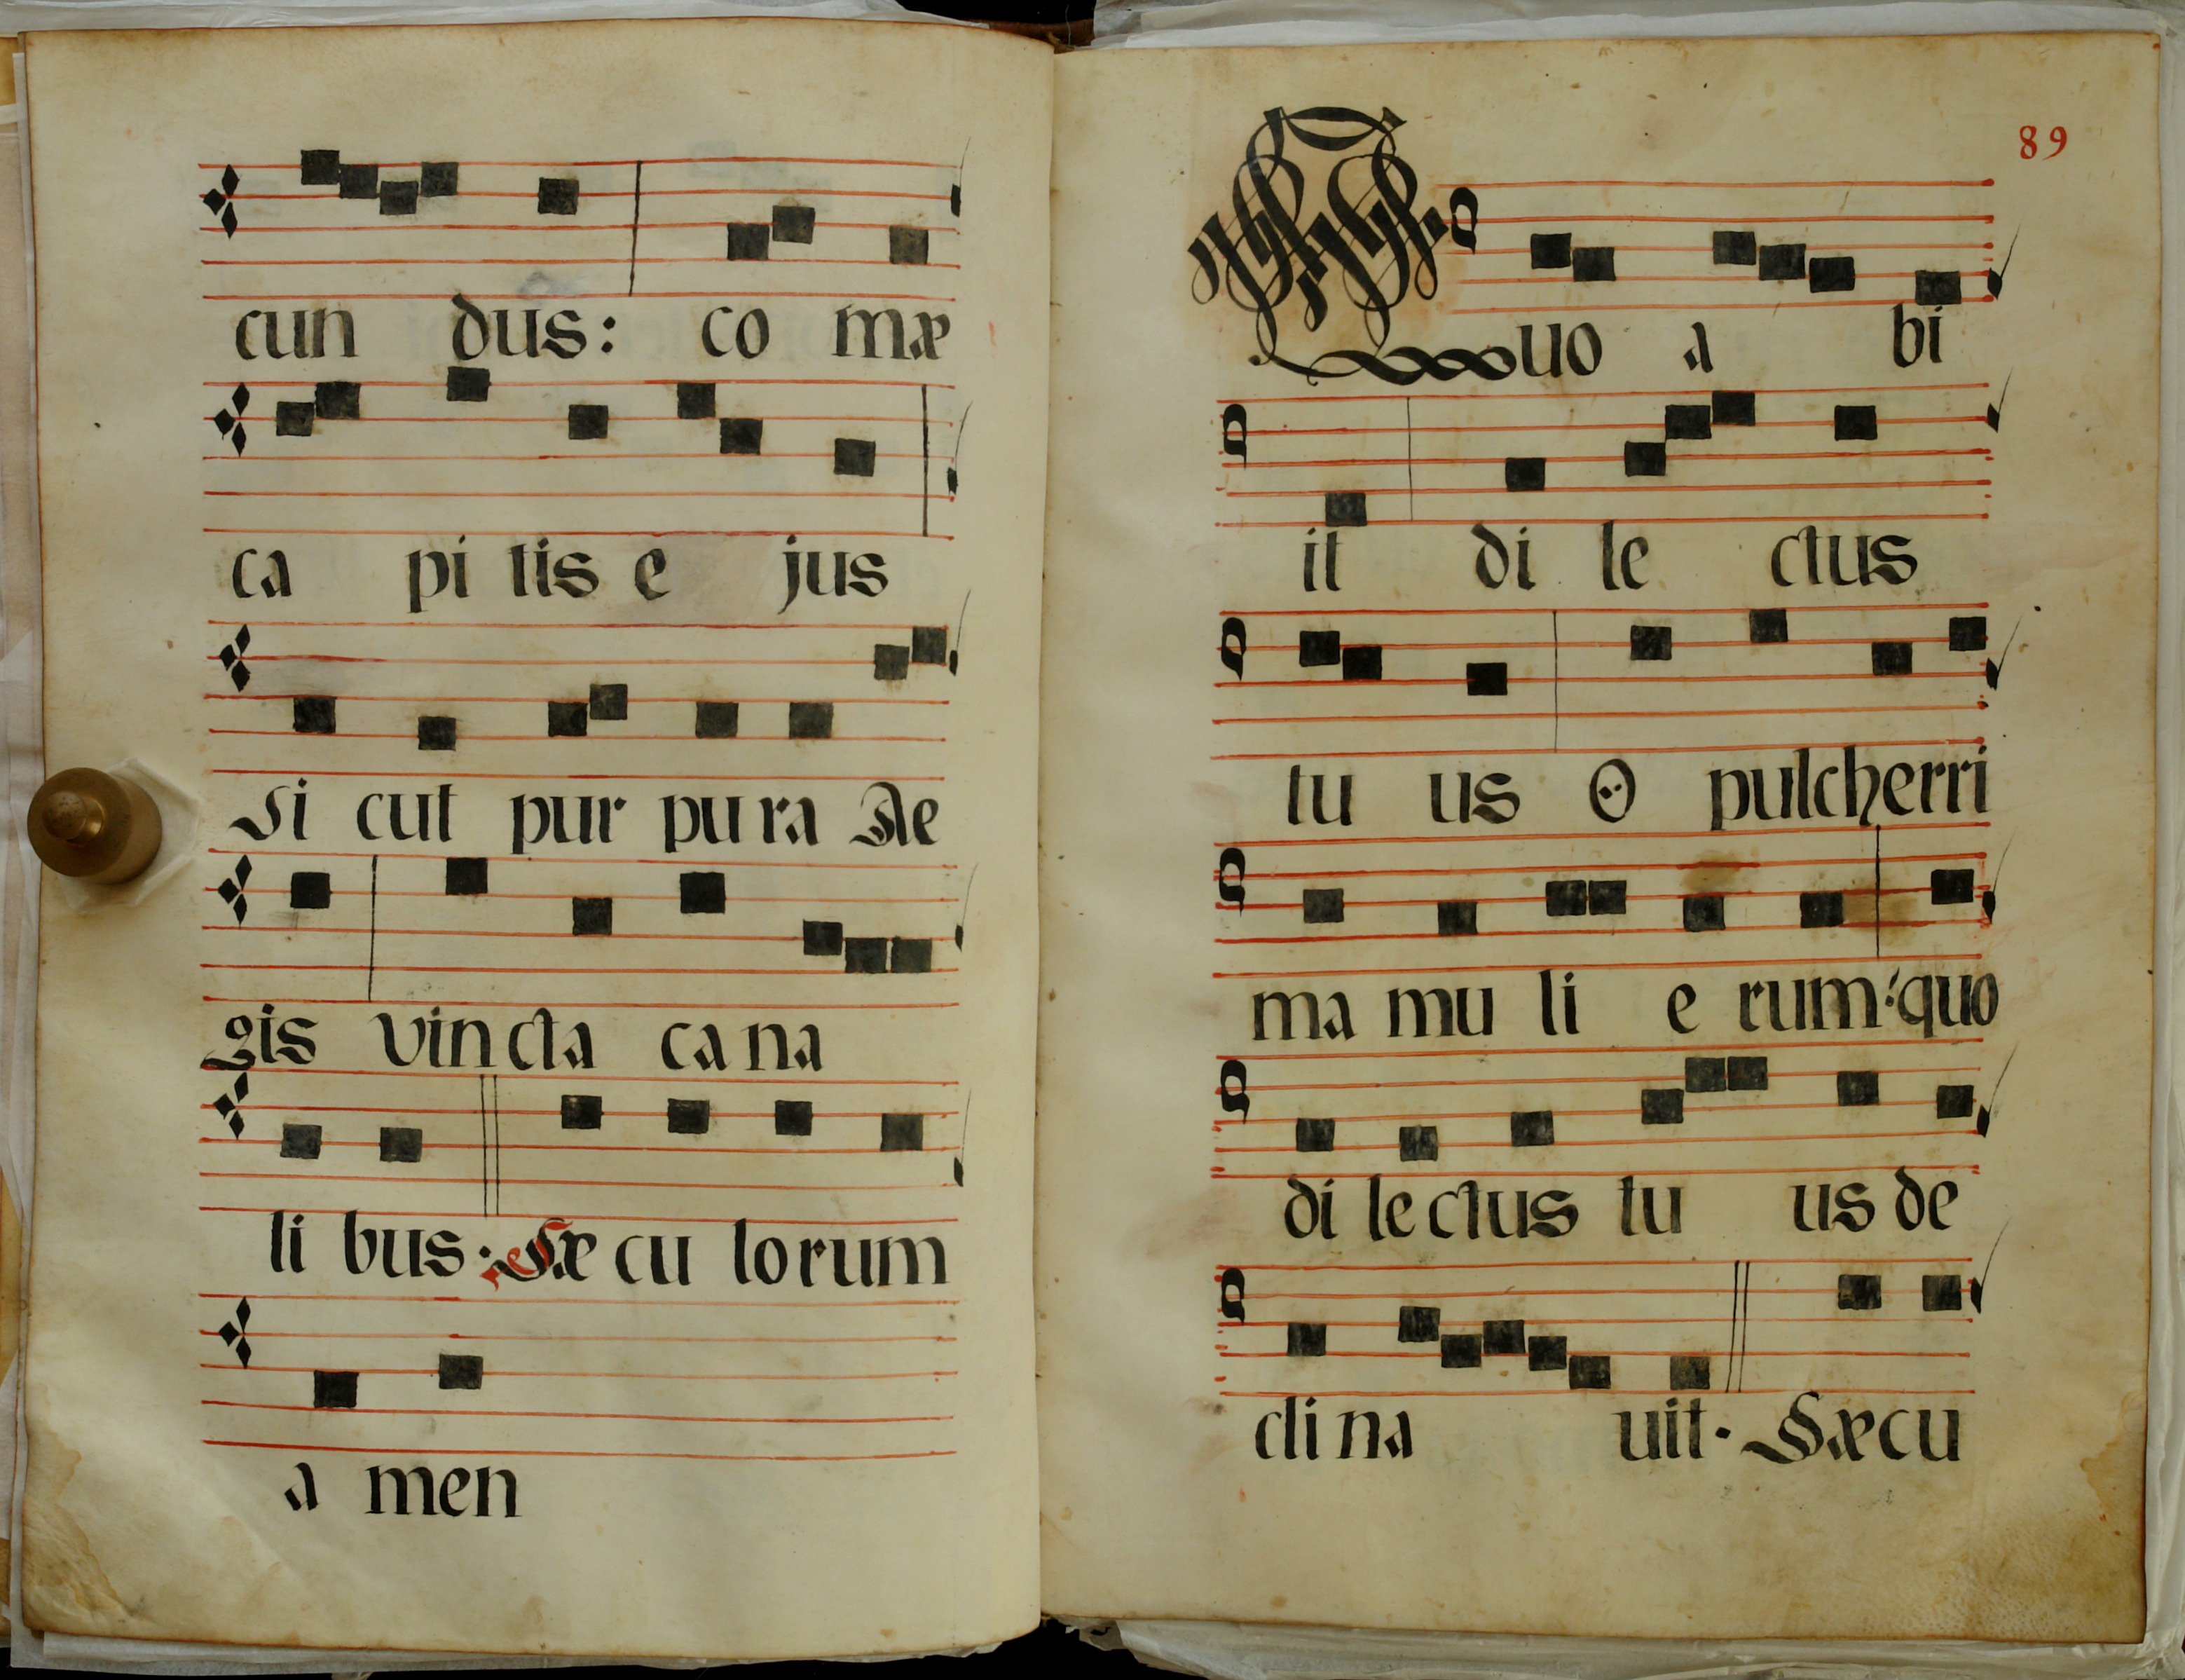 cun dus: co mæ
ca pi tis e jus
Si cut pur pu ra Re
gis vin cta ca na
li bus: Sæ cu lo rum
a men
89
Quo a bi
it di le ctus
tu us O pulcherri
ma mu li e rum: quo
di le ctus tu us de
cli na uit. Sæcu